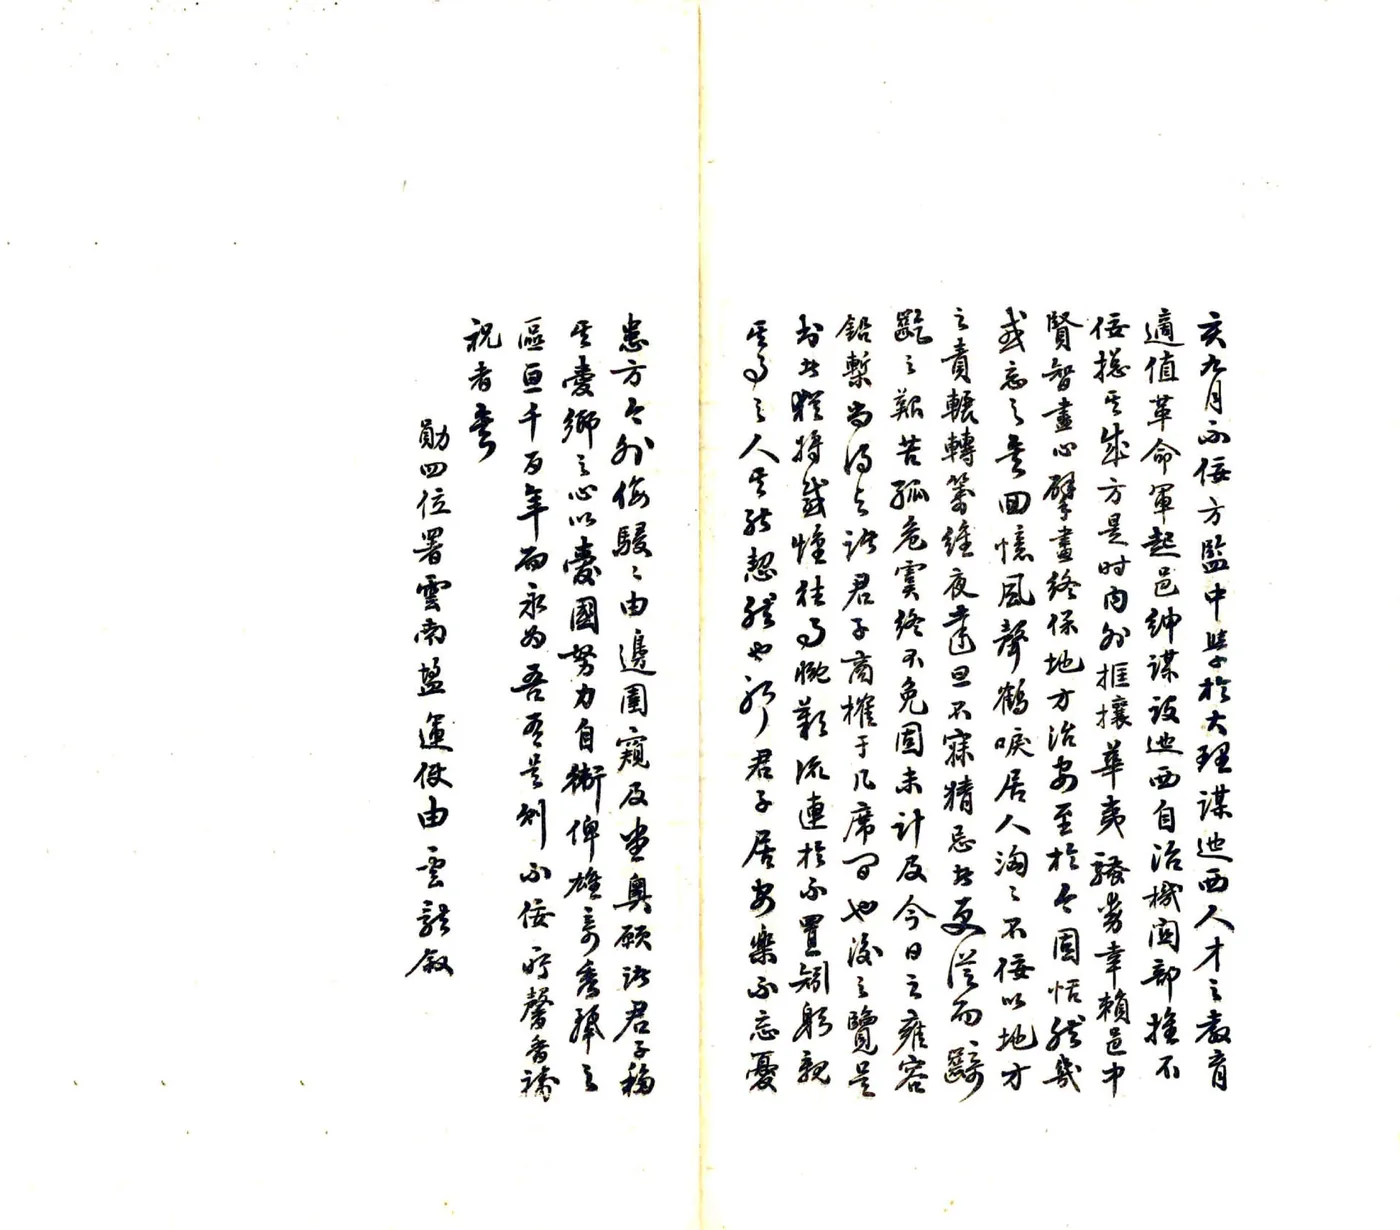 亥九月不佞方監中學於大理謀迤西人才之教育
適值革命軍起邑紳謀設迤西自治機關部推不
佞總其成方是时内外恇攘華夷騷幸賴邑中
賢智盡心擘畫終保地方治安至於今固恬然幾
或忘之矣回憶風聲鶴唳居人洶〻不佞以地方
之責輾轉籌維夜達旦不寐精忌者更從而齮
齕之艱苦孤危實終不免固未計及今日之雍容
鉛槧尚得与諸君子商榷于几席間也後之覽是
書者猶將感慨往事腕歎流連於不置矧躬親
其事之人其能恝然也耶君子居安樂不忘憂
患方今外侮駸〻由邊圉窺及堂奧願諸君子移
其愛鄉之心以愛國努力自衛俾雄奇秀之
區亘千百年而永為吾有是則不佞所馨香禱
祝者矣
勛四位署雲南鹽運使由雲龍敘